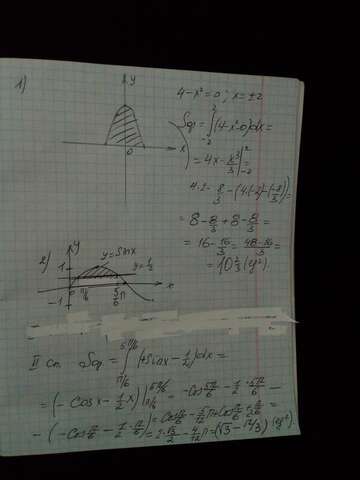 1)
y
x
0
4-x²=0; x=±2
Sφ=∫₋₂²(4-x²-0)dx=
=4x-x³/3|₋₂²
4·2-8/3-(4·(-2)-(-8/3))=
=8-8/3+8-8/3=
=16-16/3=(48-16)/3=
=10 2/3 (ед²).
2)
y
y=sinx
y=1/2
1
0
π/6
5/6π
x
-1
II сп. Sφ=∫(π/6)^(5π/6)(sinx-1/2)dx=
=(-cosx-1/2x)|(π/6)^(5π/6)=-cos5π/6-1/2·5π/6-
-(-cosπ/6-1/2·π/6)=
(ед²).